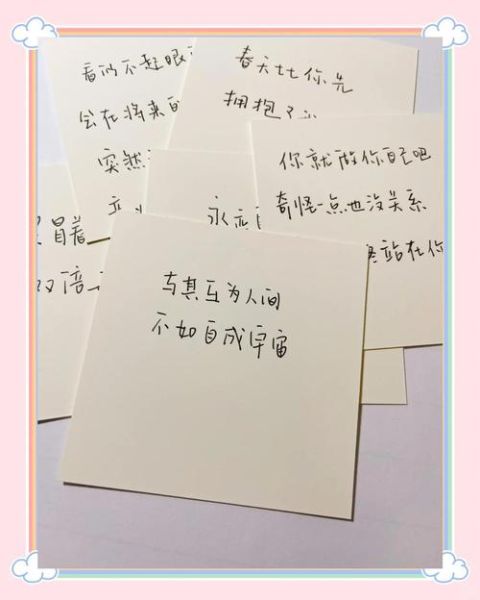 看似不起眼
会在将来
突然
春天比你先
拥抱了
你就做你自己吧
奇怪一点也没关系
站在你
永远
冒着
双倍
与其互为人间
不如自成宇宙